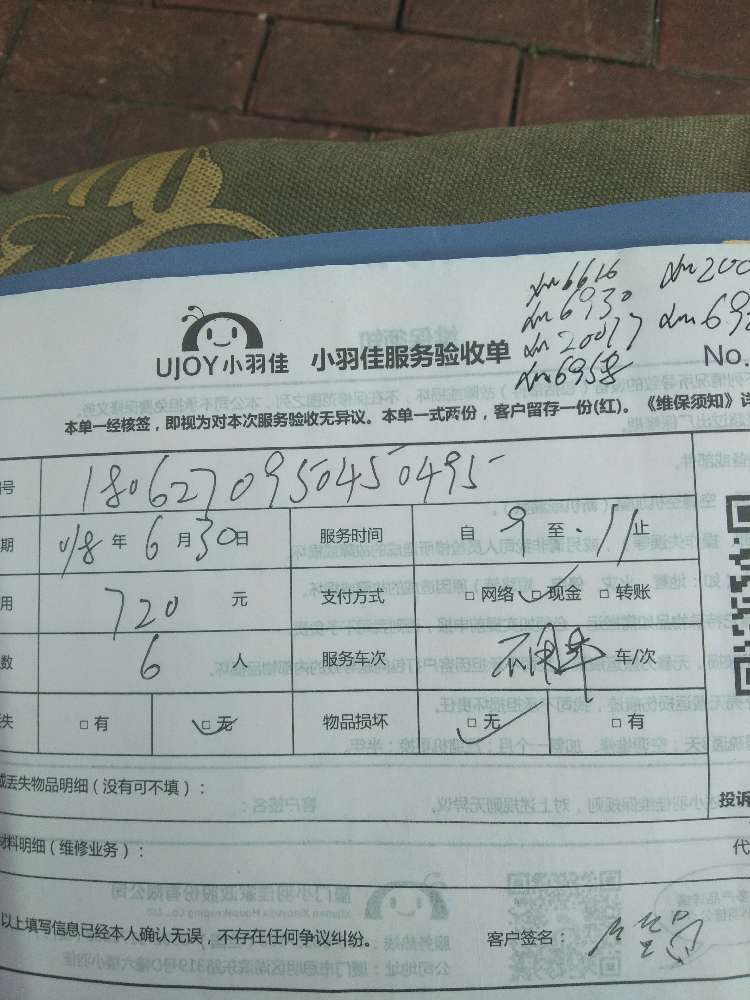 xm6616 xm200
xm6930 xm692
xm20077
xm6958
UJOY小羽佳 小羽佳服务验收单 No.
本单一经核签，即视为对本次服务验收无异议。本单一式两份，客户留存一份(红)。《维保须知》详
编号 180627095045049 5
期 018 年 6 月 30 日 服务时间 自 9 至 11 止
用 720 元 支付方式 □ 网络 □ 现金 □ 转账
数 6 人 服务车次 车/次
失 □ 有 □ 无 物品损坏 □ 无 □ 有
或丢失物品明细（没有可不填）： 投诉
材料明细（维修业务）： 代
以上填写信息已经本人确认无误，不存在任何争议纠纷。 客户签名：